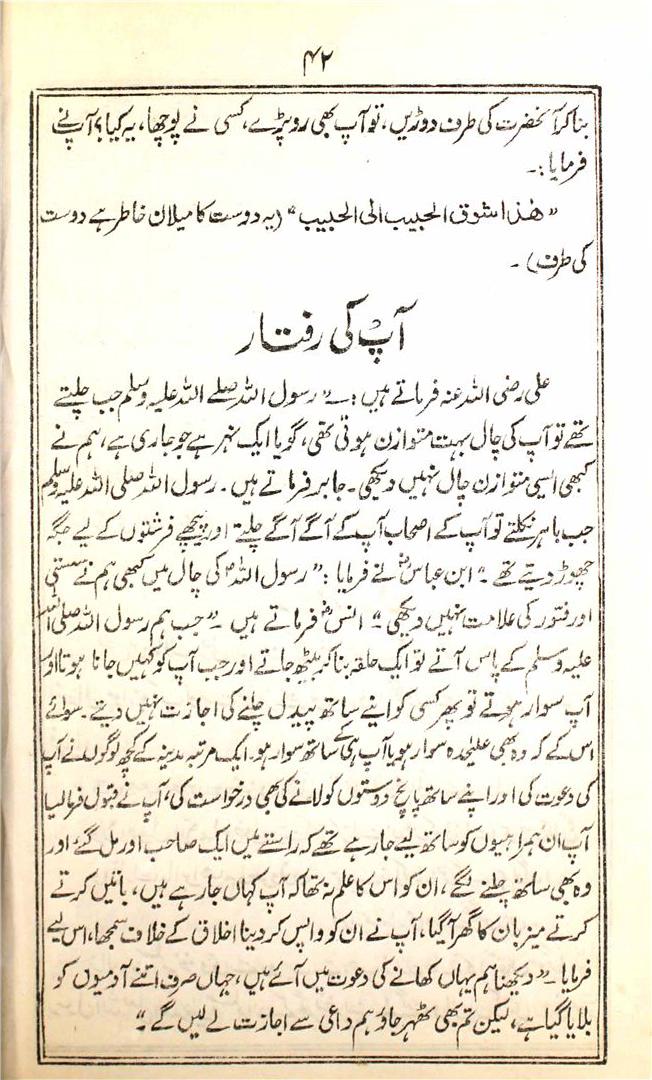 ۴۲
بنا کر آنحضرت کی طرف دوڑیں، تو آپ بھی رو پڑے، کسی نے پوچھا، یہ کیا؟ آپ نے
فرمایا:۔
”ھٰذا شوق الحبیب الی الحبیب“ (یہ دوست کا میلان خاطر ہے دوست
کی طرف)۔
آپؐ کی رفتار
علی رضی اللہ عنہ فرماتے ہیں:۔” رسول اللہ صلے اللہ علیہ وسلم جب چلتے
تھے تو آپ کی چال بہت متوازن ہوتی تھی، گویا ایک نہر ہے جو جاری ہے، ہم نے
کبھی ایسی متوازن چال نہیں دیکھی۔ جابر فرماتے ہیں۔ رسول اللہ صلی اللہ علیہ وسلم
جب باہر نکلتے تو آپ کے اصحاب آپ کے آگے آگے چلتے اور پیچھے فرشتوں کے لیے جگہ
چھوڑ دیتے تھے۔“ ابن عباسؓ نے فرمایا :” رسول اللہؐ کی چال میں کبھی ہم نے سستی
اور فتور کی علامت نہیں دیکھی۔“ انسؓ فرماتے ہیں ۔” جب ہم رسول اللہ صلی اللہ
علیہ وسلم کے پاس آتے تو ایک حلقہ بنا کر بیٹھ جاتے اور جب آپ کو کہیں جانا ہوتا اور
آپ سوار ہوتے تو پھر کسی کو اپنے ساتھ پیدل چلنے کی اجازت نہیں دیتے۔ سوائے
اس کے کہ وہ بھی علیٰحدہ سوار ہو یا آپ ہی کے ساتھ سوار ہو۔ ایک مرتبہ مدینہ کے کچھ لوگوں نے آپ
کی دعوت کی اور اپنے ساتھ پانچ دوستوں کو لانے کی بھی درخواست کی، آپ نے قبول فرما لیا
آپ ان ہمراہیوں کو ساتھ لیے جا رہے تھے کہ راستے میں ایک صاحب اور مل گئے، اور
وہ بھی ساتھ چلنے لگے، ان کو اس کا علم نہ تھا کہ آپ کہاں جا رہے ہیں، باتیں کرتے
کرتے میزبان کا گھر آ گیا، آپ نے ان کو واپس کر دینا اخلاق کے خلاف سمجھا، اس لیے
فرمایا۔” دیکھنا ہم یہاں کھانے کی دعوت میں آئے ہیں، جہاں صرف اتنے آدمیوں کو
بلایا گیا ہے، لیکن تم بھی ٹھہر جاؤ ہم داعی سے اجازت لے لیں گے۔“